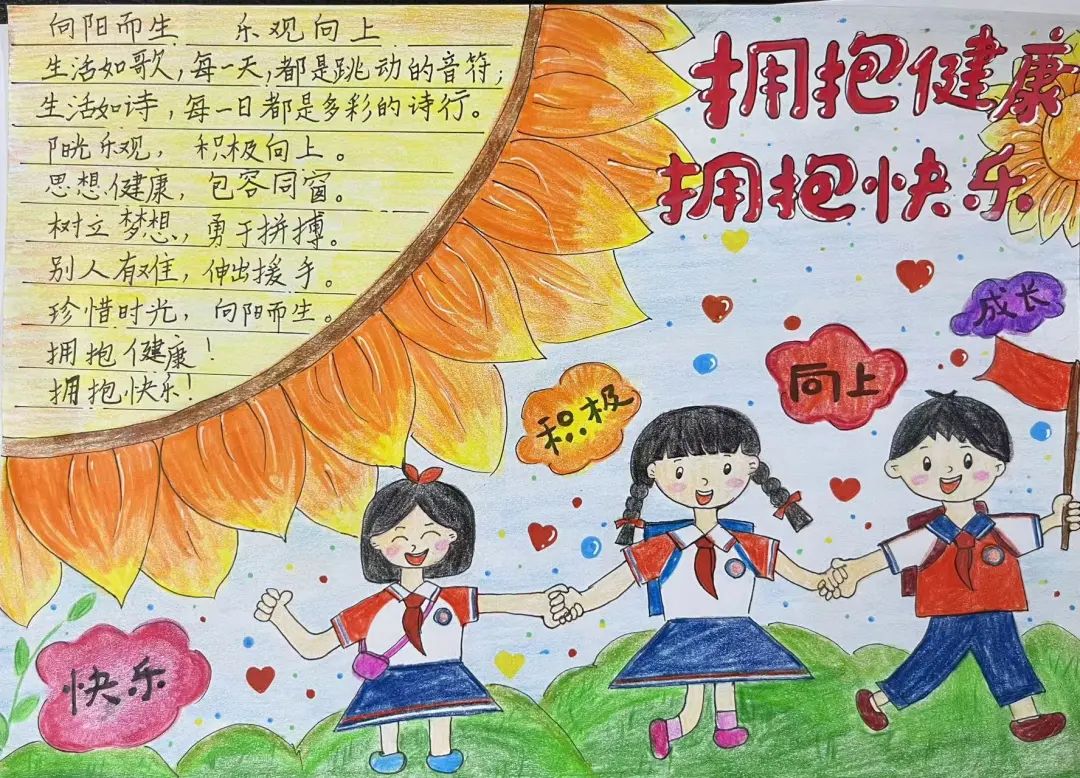 向阳而生 乐观向上
生活如歌，每一天，都是跳动的音符；
生活如诗，每一日都是多彩的诗行。
阳光乐观， 积极向上。
思想健康， 包容同窗。
树立梦想，勇于拼搏。
别人有难， 伸出援手。
珍惜时光， 向阳而生。
拥抱健康！
拥抱快乐！
拥抱健康
拥抱快乐
成长
向上
积极
快乐